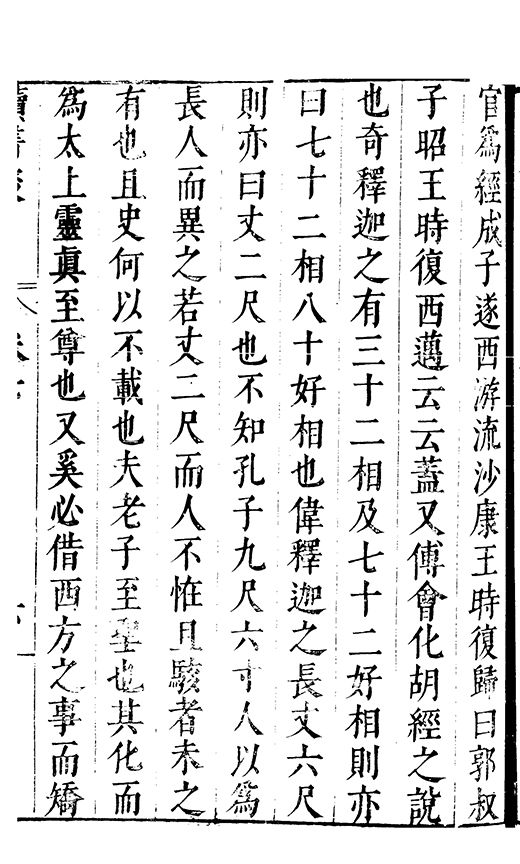 官爲經成子遂西游流沙康王時復歸曰郭叔
子昭王時復西邁云云蓋又傅會化胡經之說
也奇釋迦之有三十二相及七十二好相則亦
曰七十二相八十好相也偉釋迦之長丈六尺
則亦曰丈二尺也不知孔子九尺六寸人以爲
長人而異之若丈二尺而人不怪且駭者未之
有也且史何以不載也夫老子至聖也其化而
爲太上靈眞至尊也又奚必借西方之事而矯